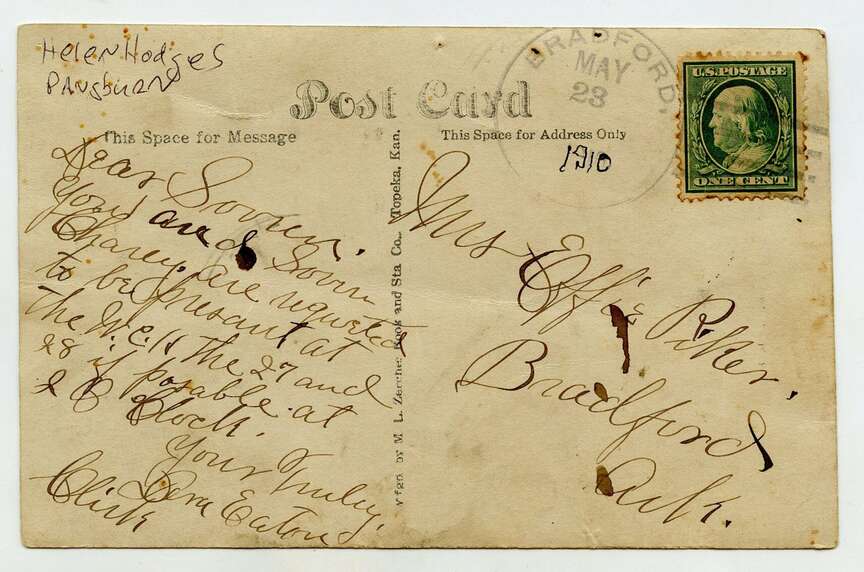 Helen Hodges
Pangburn
Post Card
This Space for Message
This Space for Address Only
BRADFORD,
MAY
23
1910
U.S. POSTAGE
ONE CENT
Dear
You and
are requested
to be presant at
the W.C. the 27 and
28 if posable at
O Clock.
Your Truley,
Eaton
Clerk
M. L. Zercher Book and Sta Co., Topeka, Kan.
Mrs Effie Piker.
Bradford
Ark.